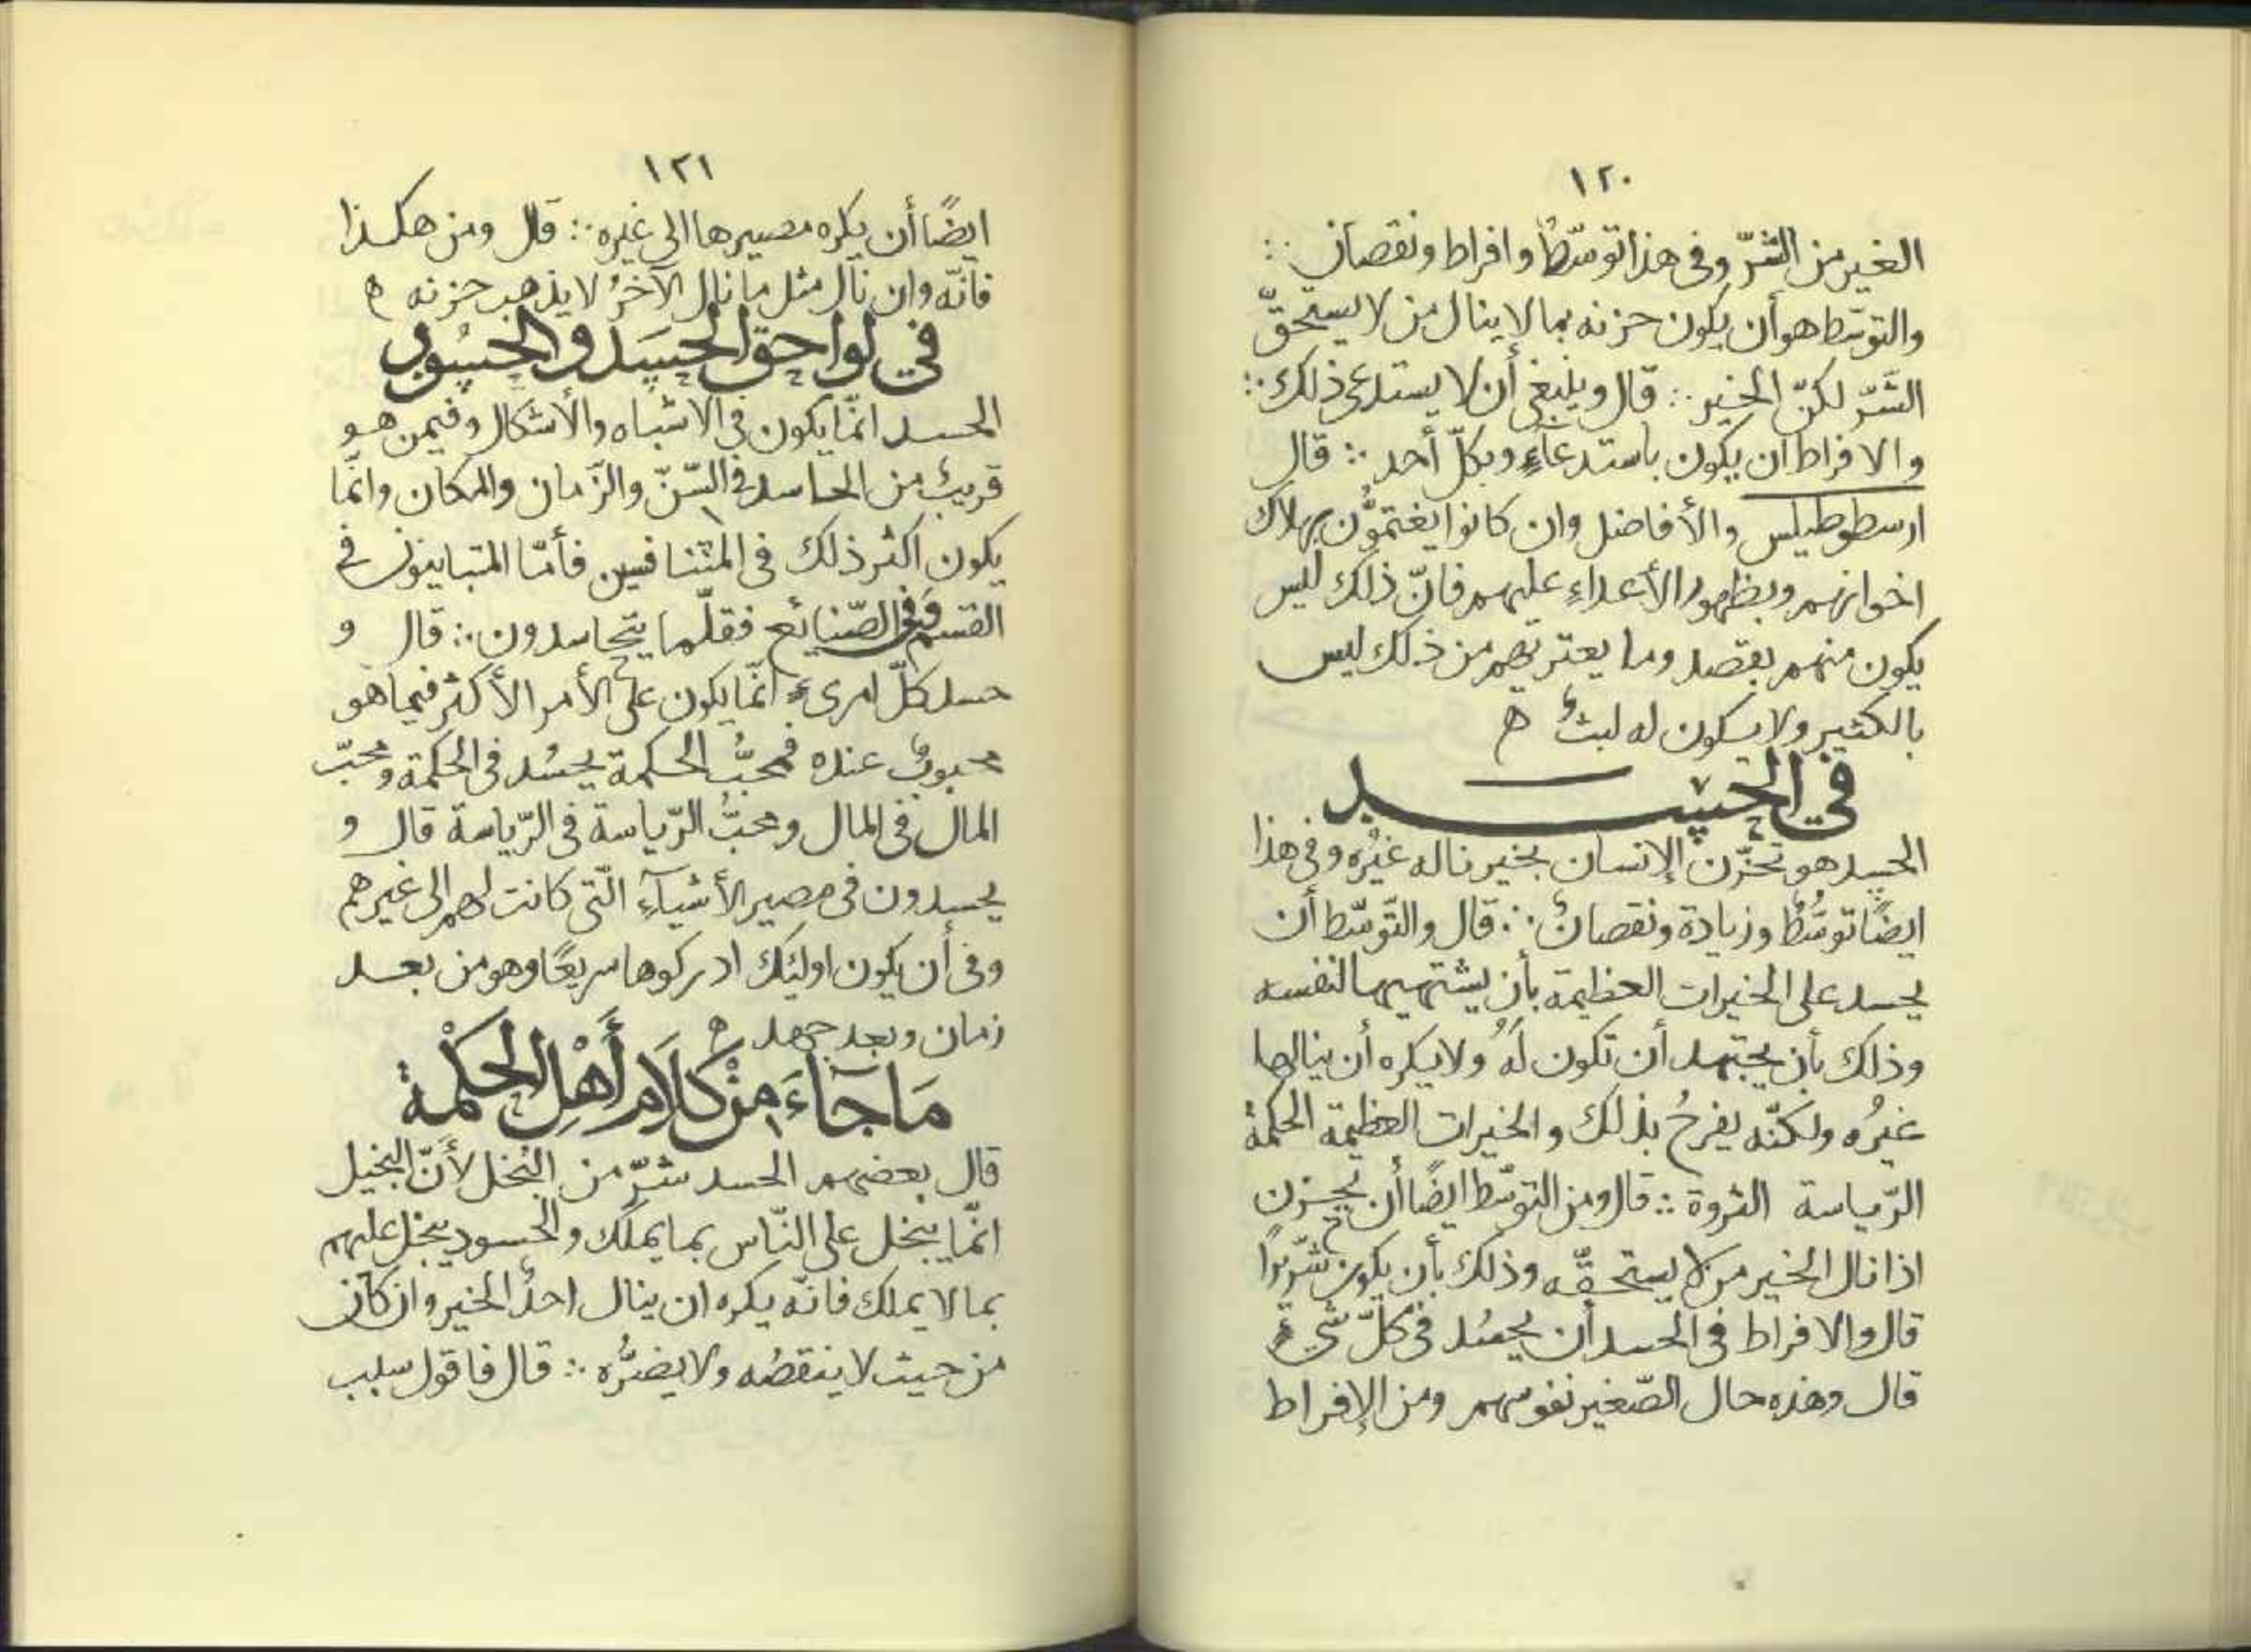 ١٢٠
الغير من الشرّ وفى هذا توسّطٌ وافراط ونقصان ∴
والتوسّط هو أن يكون حزنه بما لا ينال من لا يستحقّ
الشَّرّ لكنّ الخير ∴ قال وينبغى أن لا يستدعى ذلك ∴
والافراط ان يكون باستدعآءٍ وبكلّ أحد ∴ قال
ارسطوطيلس والأفاضل وان كانوا يغتمّون بهلاك
اخوانهم وبظهور الأعداءِ عليهم فانّ ذلك ليس
يكون منهم بقصد وما يعتريهم من ذلك ليس
بالكثير ولا يكون له لبثٌ ه
في الحسد
الحسد هو تحزّن الإنسان بخير ناله غيرُه وفى هذا
ايضًا توسُّطٌ وزيادة ونقصانٌ ∴ قال والتَّوسّط أن
يحسد على الخيرات العظيمة بأن يشتهيها لنفسه
وذلك بأن يجتهد أن تكون لَهُ ولا يكره أن ينالها
غيرُه ولكنّه يفرحُ بذلك والخيرات العظيمة الحكمةُ
الرّياسة الثروة ∴ قال ومن التوسّط ايضًا أن يحزن
اذا نال الخير من لا يستحقّه وذلك بأن يكون شرّيرًا
قال والافراط فى الحسد أن يحسُد فى كلّ شىءٍ
قال وهذه حال الصّغير نفوسهم ومن الإفراط
١٢١
ايضًا أن يكره مصيرها الى غيره ∴ قال ومن هكذا
فانّه وان نال مثل ما نال الآخرُ لا يذهب حزنه ه
في لواحق الحسَد والحسُود
الحسد انمّا يكون فى الاشباه والأشكال وفيمن هو
قريبٌ من الحاسد فى السّنّ والزَّمان والمكان وانمّا
يكون اكثر ذلك فى المتنافسين فأمّا المتباينون فى
القسم وفى الصّنايع فقلّما يتحاسدون ∴ قال و
حسد كلّ امرىءٍ انمّا يكون على الأمر الأكثر فيما هو
محبوبٌ عنده فمحبُّ الحكمة يحسُد فى الحكمة ومحبّ
المال فى المال ومحبُّ الرّياسة فى الرّياسة قال و
يحسدون فى مصير الأشيآءِ الّتى كانت لهم الى غيرهم
وفى أن يكون اوليٰك ادركوها سريعًا وهو من بعد
زمان وبعد جهد ه
مَا جَآءَ مِنْ كَلَامِ أَهْلِ الحِكْمَة
قال بعضهم الحسد شرّ من البُخل لأنّ البخيل
انمّا يبخل على النّاس بما يملك والحسود يبخل عليهم
بما لا يملك فانّه يكره ان ينال احدٌ الخير وان كان
من حيث لا ينقصُه ولا يضرُّه ∴ قال فاقول سبب